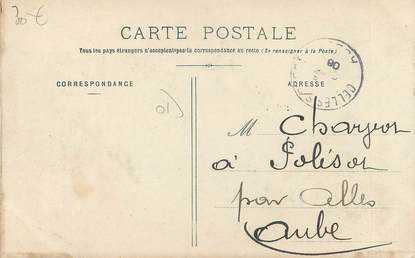 30 €
CARTE POSTALE
Tous les pays étrangers n'acceptent pas la correspondance au recto (Se renseigner à la Poste)
CORRESPONDANCE
ADRESSE
CELLES
01)
M
à Polisot
par Celles
Aube